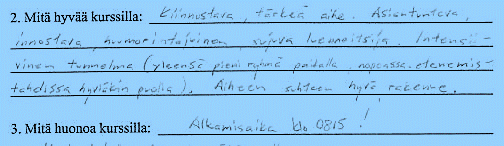 2. Mitä hyvää kurssilla: Kiinnostava, tärkeä aihe. Asiantunteva,
innostava, huumorintajuinen, sujuva luennoitsija. Intensii-
vinen tunnelma (yleensä pieni ryhmä paikalla, nopeassa etenemis-
tahdissa hyviäkin puolia). Aiheen suhteen hyvä rakenne.
3. Mitä huonoa kurssilla: Alkamisaika klo 0815!